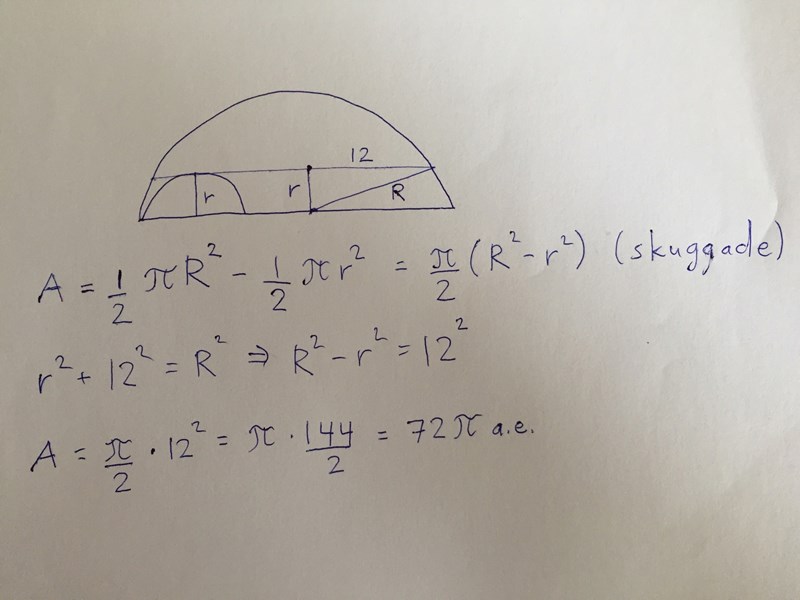 12
r r R
A = 1/2 πR² - 1/2 πr² = π/2 (R² - r²) (skuggade)
r² + 12² = R² ⇒ R² - r² = 12²
A = π/2 · 12² = π · 144/2 = 72π a.e.